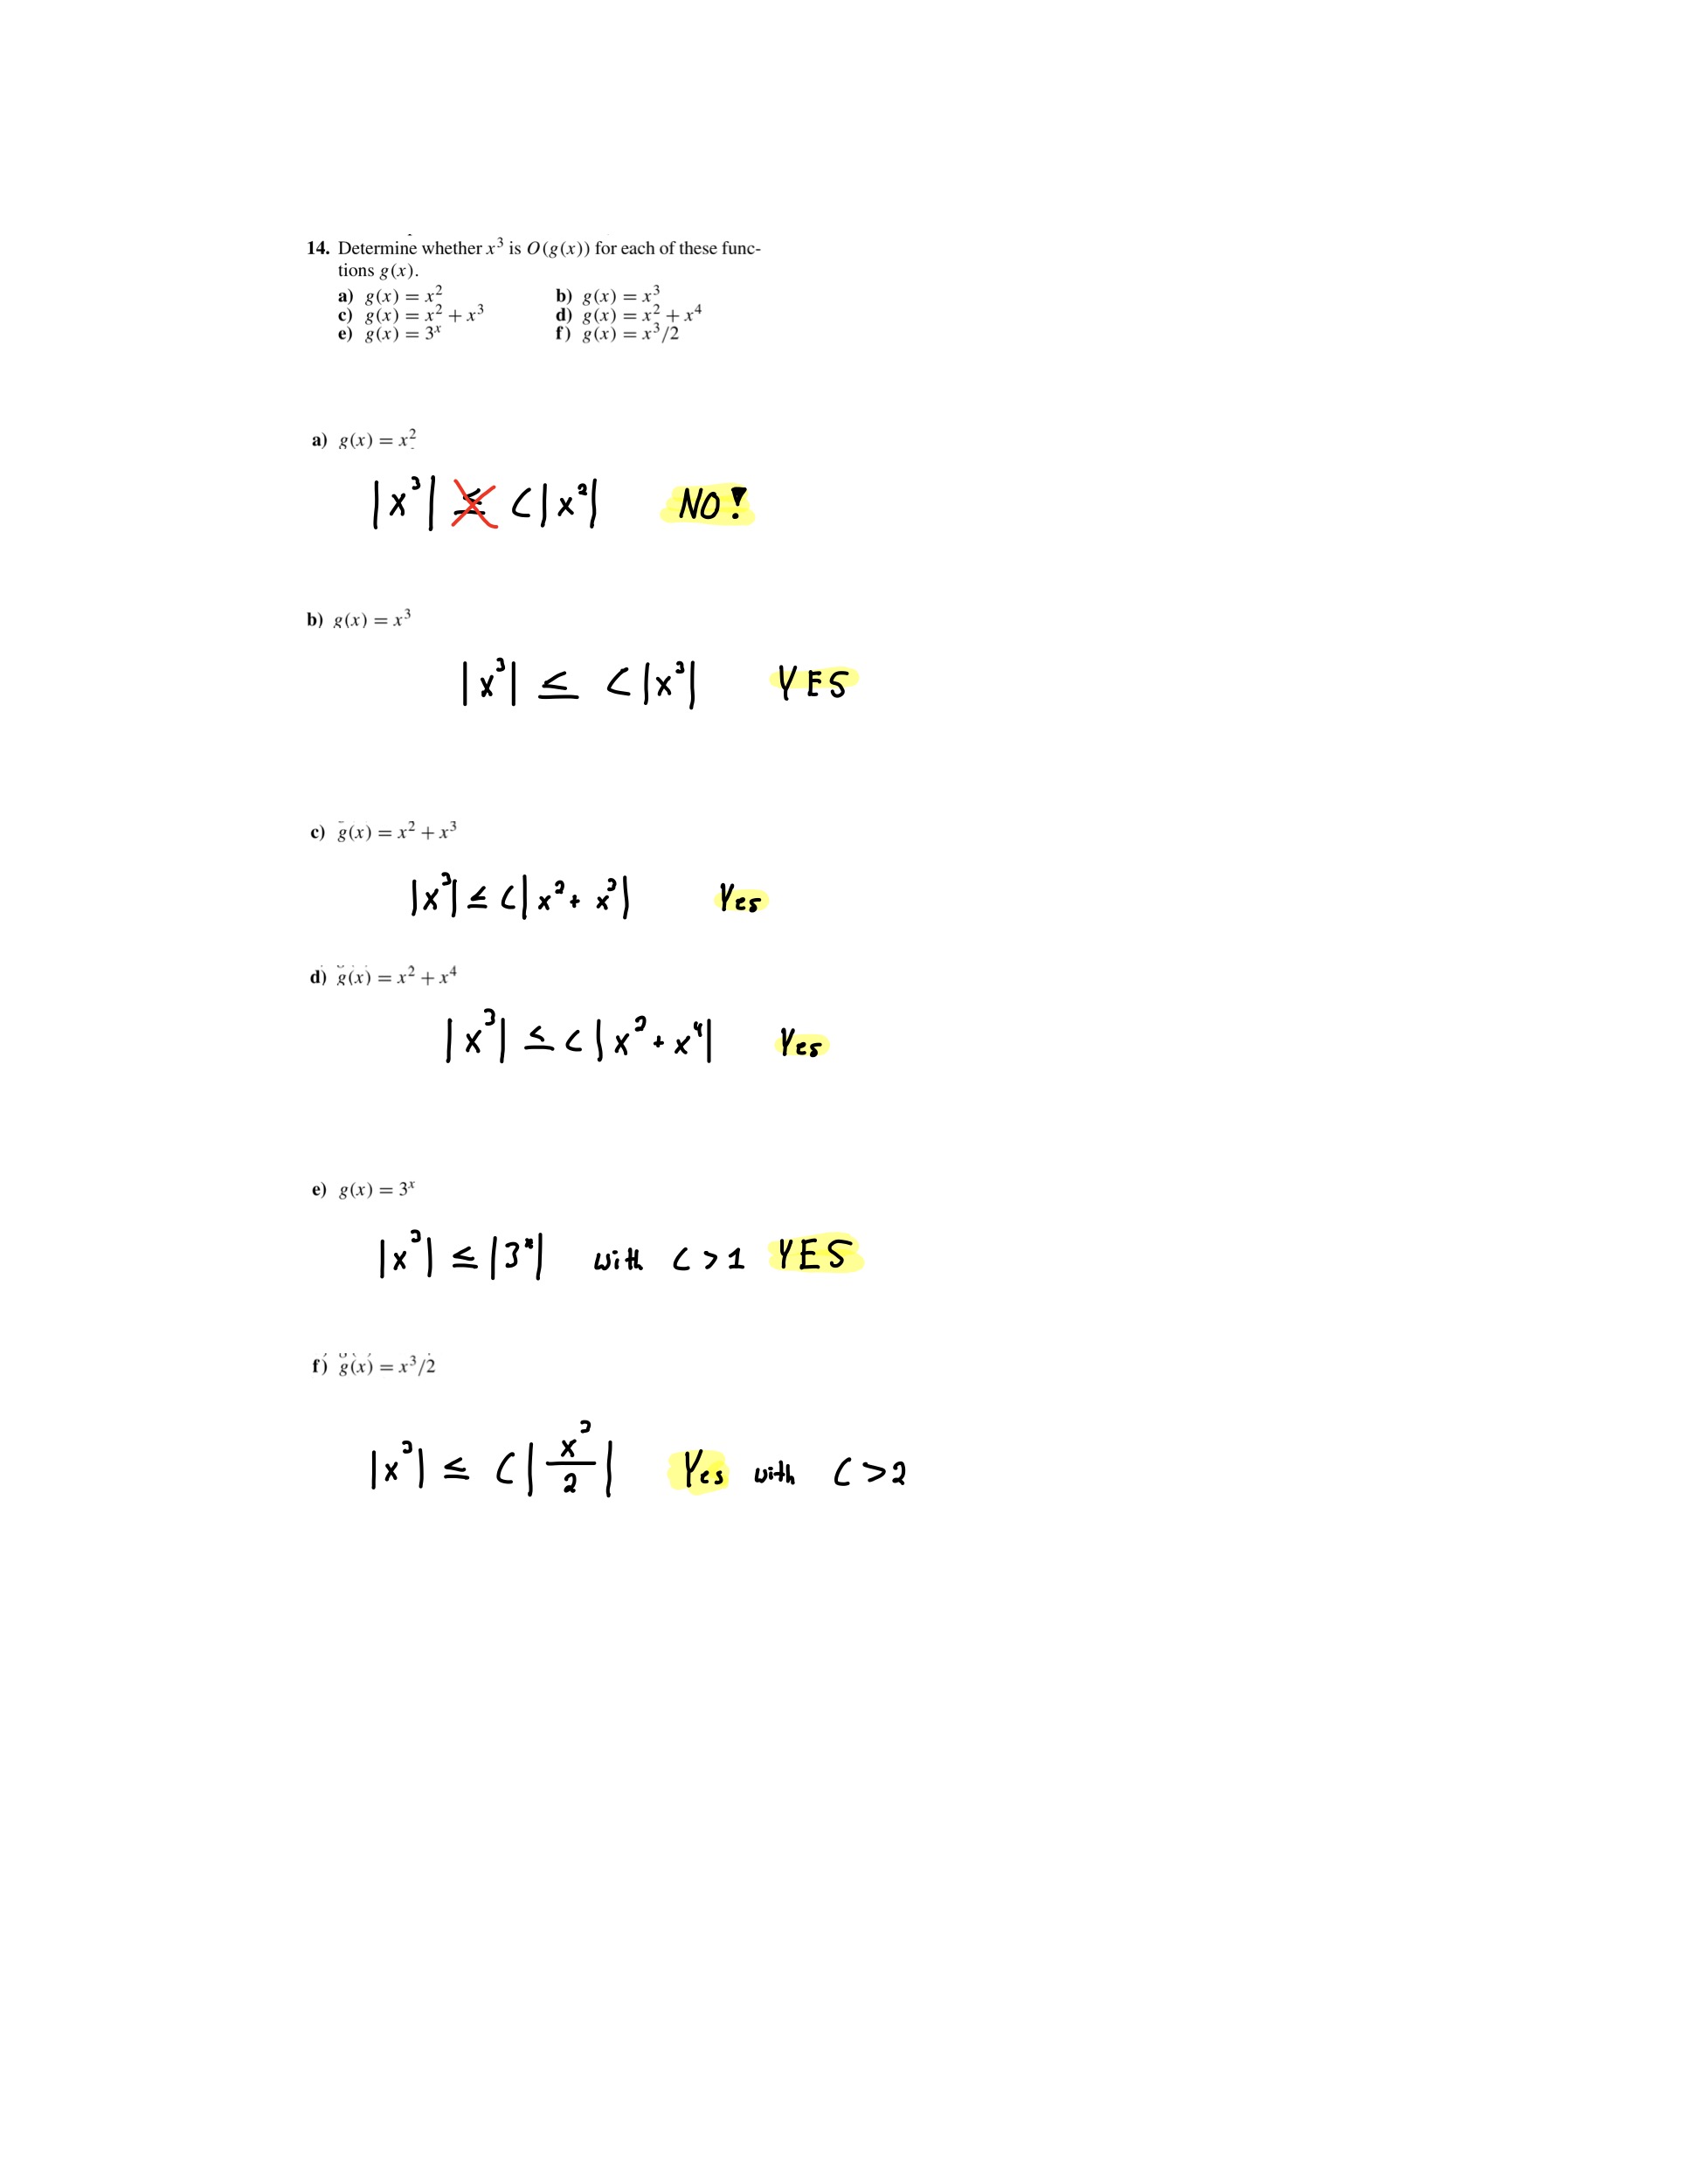 14. Determine whether x³ is O(g(x)) for each of these func-
tions g(x).
a) g(x) = x² b) g(x) = x³
c) g(x) = x² + x³ d) g(x) = x² + x⁴
e) g(x) = 3ˣ f) g(x) = x³/2
a) g(x) = x²
|x³| ≤ C|x²| NO!
b) g(x) = x³
|x³| ≤ C|x³| YES
c) g(x) = x² + x³
|x³| ≤ C|x² + x³| Yes
d) g(x) = x² + x⁴
|x³| ≤ C|x² + x⁴| Yes
e) g(x) = 3ˣ
|x³| ≤ |3ˣ| with C > 1 YES
f) g(x) = x³/2
|x³| ≤ C|x³/2| Yes with C > 2